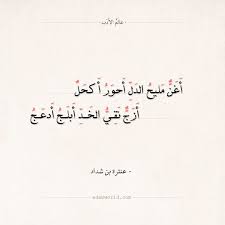 - عالم الأدب -
أَغَنُّ مَليحُ الدَلِّ أَحوَرُ أَكحَلٌ
أَزَجُّ نَقِيُّ الخَدِّ أَبلَجُ أَدعَجُ
- عنترة بن شداد -
adabworld.com